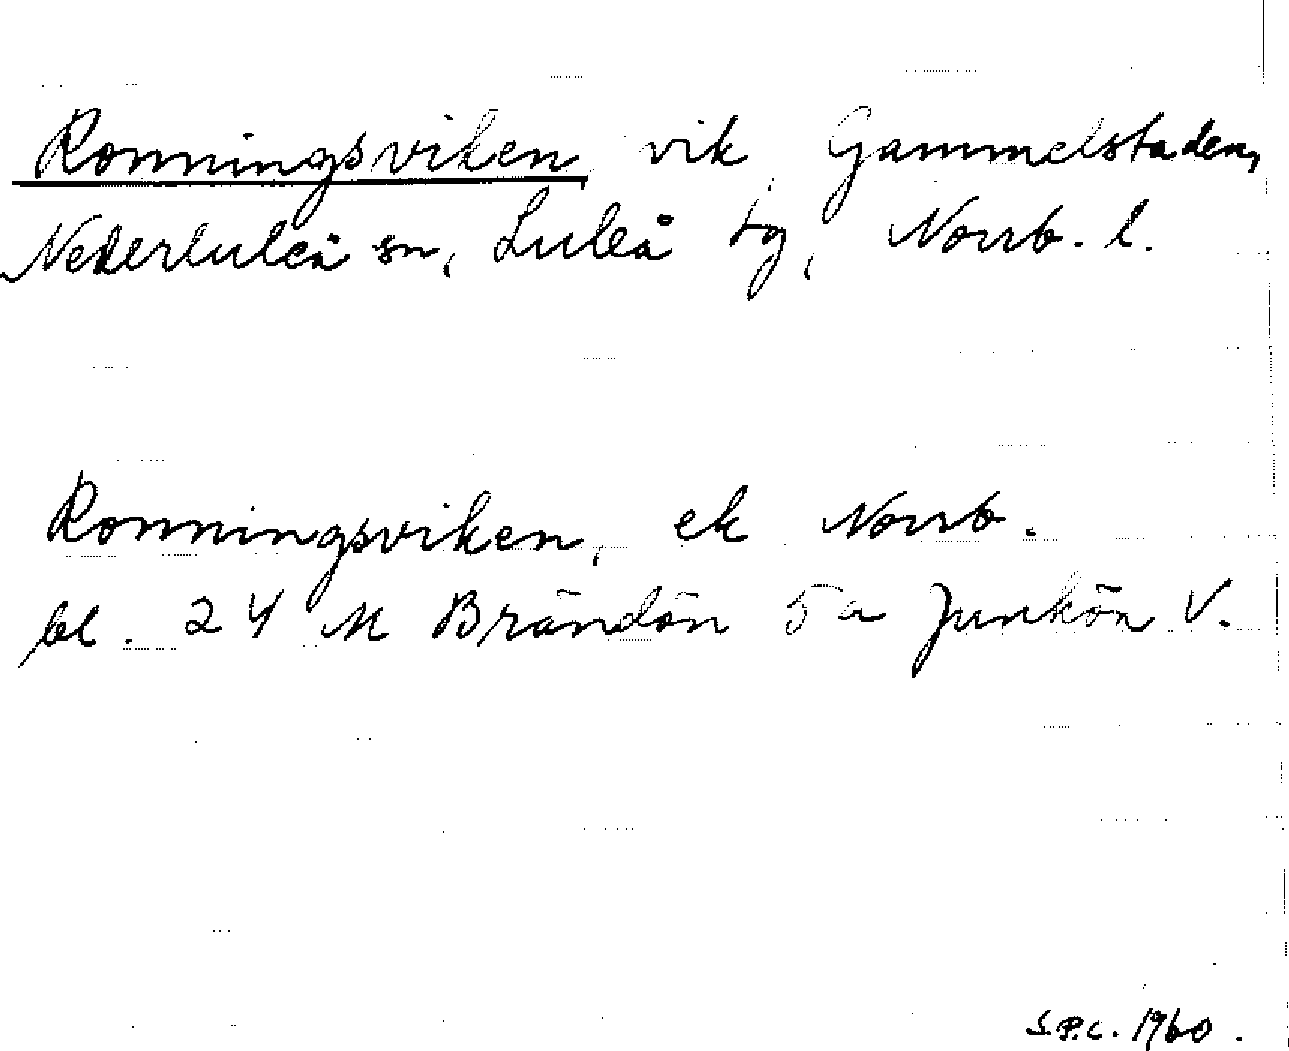 Ronningsviken, vik Gammelstaden,
Nederluleå sn, Luleå tg, Norrb. l.
Ronningsviken, ek Norrb.
bl. 24 M Brändön 5a Junkön V.
S.P.C. 1960.